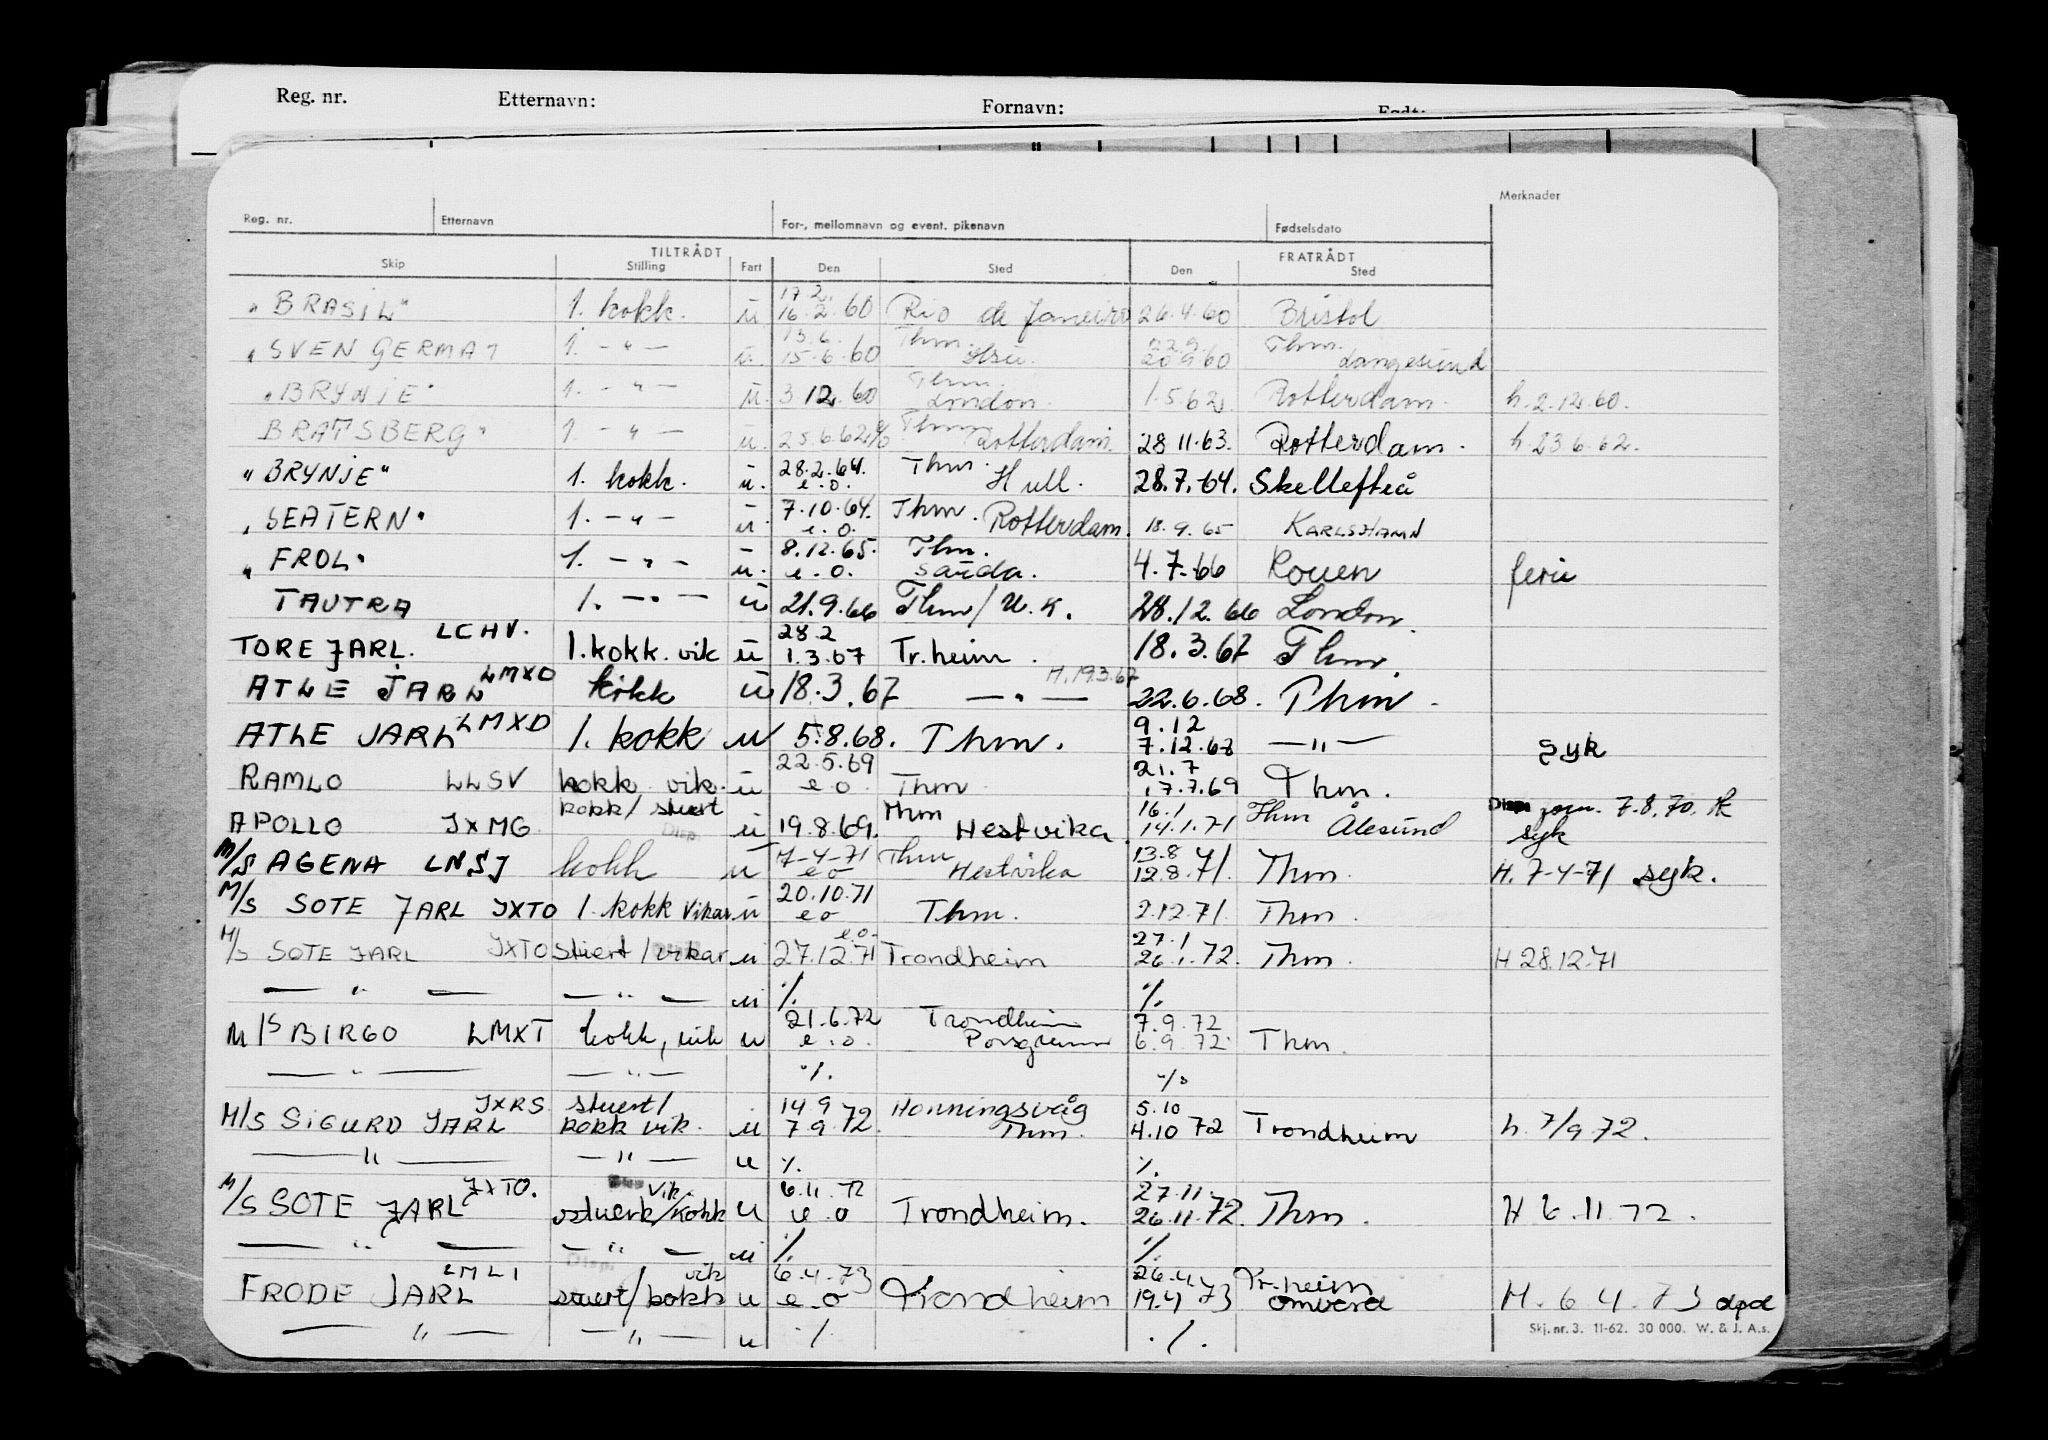 Reg. nr. Etternavn: Fornavn: Født:
Merknader
Reg. nr. Etternavn For-, mellomnavn og event. pikenavn Fødselsdato
TILTRÅDT FRATRÅDT
Skip Stilling Fart Den Sted Den Sted
17.2.
"BRASIL" 1. kokk. u 16.2.60 Rio de Janeiro 26.4.60 Bristol
13.6. Thm. 22.9. Thm.
"SVEN GERMA" 1. - " - u. 15.6.60 20.9.60 Langesund
Thm.
"BRYNJE" 1. - " - u. 3.12.60 London 1.5.62 Rotterdam. h. 2.12.60.
Thm.
BRATSBERG" 1. - " - u. 25.6.62 % Rotterdam. 28.11.63. Rotterdam. h. 23.6.62.
28.2.64. Thm.
"BRYNJE" 1. kokk. u. e.o. Hull. 28.7.64. Skellefteå
7.10.64. Thm.
"SEATERN" 1. - " - u. e.o. Rotterdam. 18.9.65 KARLSHAMN
8.12.65. Thm.
"FROL" 1. - " - u. e.o. Sauda. 4.7.66 Rouen ferie
TAUTRA 1. - " - u 21.9.66 Thm/U.K. 28.12.66 London.
LCHV. 28.2
TORE JARL. 1. kokk. vik u 1.3.67 Tr.heim. 18.3.67 Thm.
LMXD H. 19.3.67
ATLE JARL kokk u 18.3.67 - " - 22.6.68. Thm.
LMXD 9.12
ATLE JARL 1. kokk u 5.8.68. Thm. 7.12.68 - " - syk
22.5.69 21.7
RAMLO LLSV kokk vik. u e o Thm 17.7.69 Thm.
kokk/stuert Thm 16.1 Thm Disp. 7.8.70.
APOLLO JXMG Disp. u 19.8.69. Hestvika 14.1.71 Ålesund syk
7-4-71 Thm 13.8
M/S AGENA LNSJ kokk u e o Hestvika 12.8.71. Thm. H. 7-4-71 syk.
20.10.71
M/S SOTE JARL JXTO 1. kokk vikar u e o Thm. 2.12.71. Thm.
e.o. 27.1
M/S SOTE JARL JXTO stuert/vikar u 27.12.71 Trondheim 26.1.72. Thm. H 28.12.71
— " — — " — u % %
21.6.72 Trondheim 7.9.72
M/S BIRGO LMXT kokk, vik u e.o. Porsgrunn 6.9.72. Thm.
— " — — " — % %
JXRS stuert/ 14 9 Honningsvåg 5.10
M/S SIGURD JARL kokk vik. u 7.9.72. Thm. 4.10 72 Trondheim h. 7/9 72.
— " — — " — u % %
JXTO. vik. 6.11.72 27.11
M/S SOTE JARL stuert/kokk u e o Trondheim. 26.11.72. Thm. H 6.11.72.
— " — — " — u % %
Disp.
LMLI vik 6.4.73 26.4 Tr.heim
FRODE JARL stuert/kokk u e.o Trondheim 19.4 73 ombord H. 6 4. 73
— " — — " — u % %
Skj. nr. 3. 11-62. 30 000. W. & J. A.s.